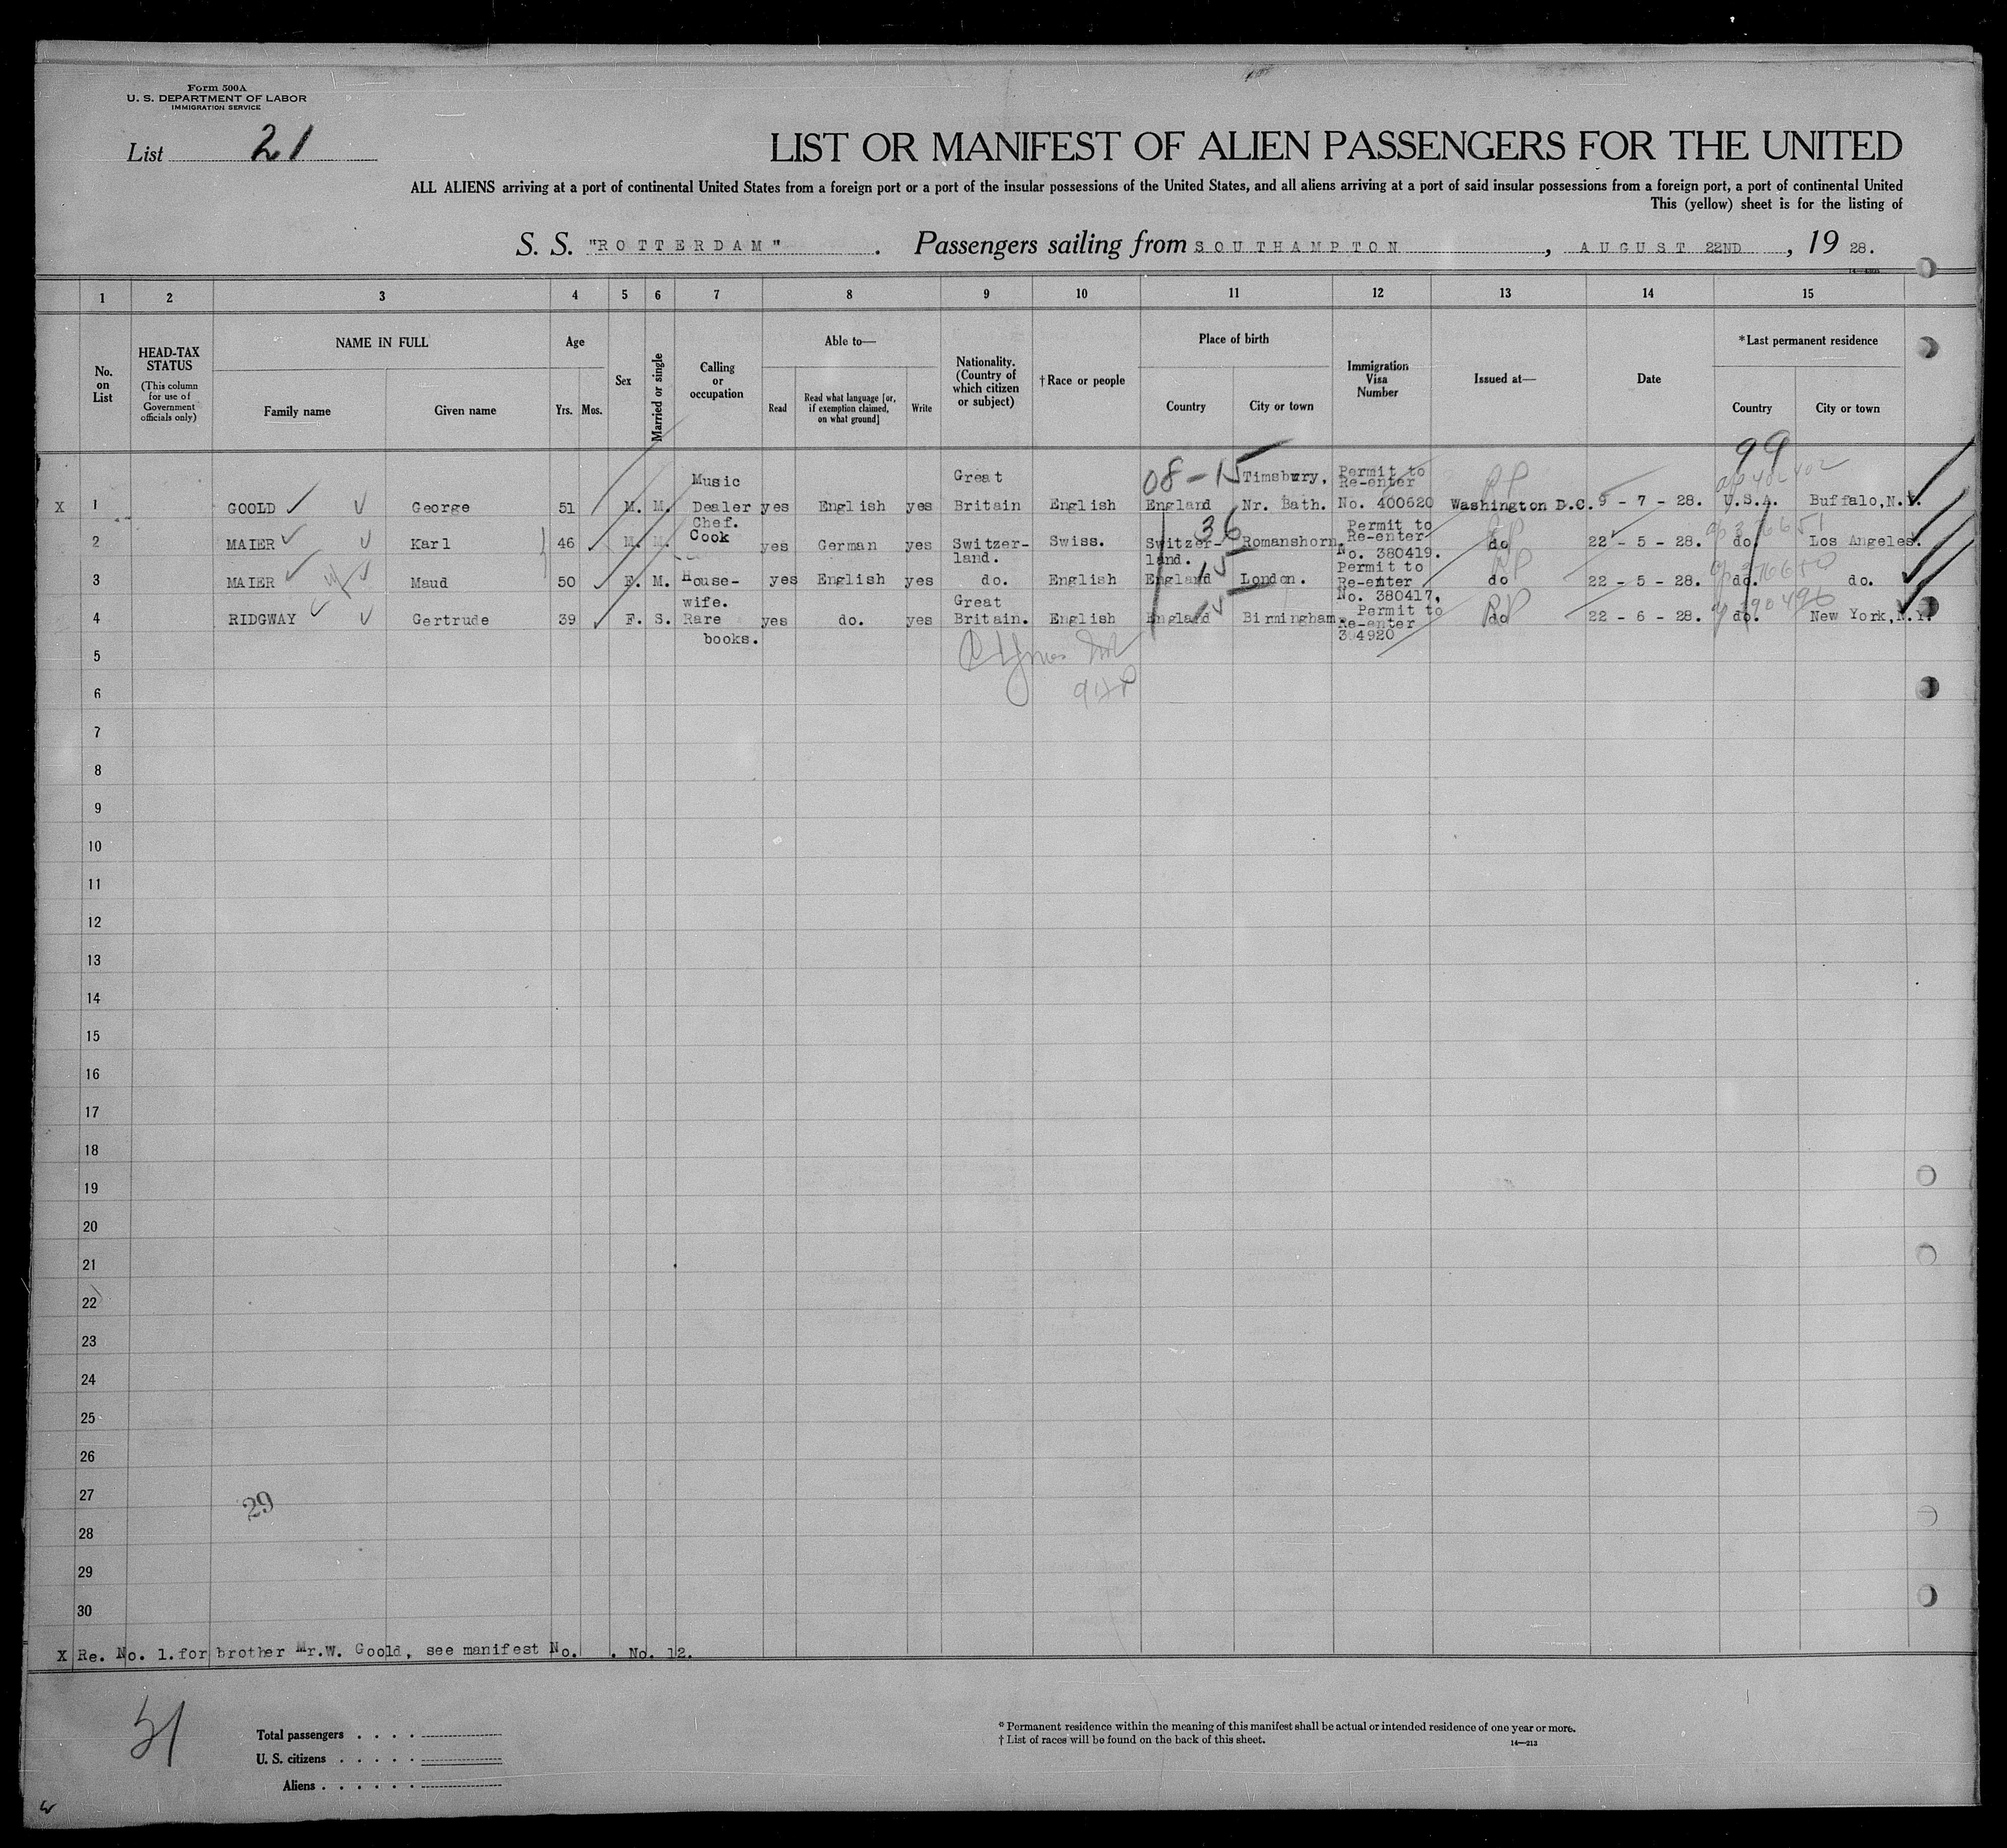 Form 500A
U. S. DEPARTMENT OF LABOR
IMMIGRATION SERVICE
List 21
LIST OR MANIFEST OF ALIEN PASSENGERS FOR THE UNITED
ALL ALIENS arriving at a port of continental United States from a foreign port or a port of the insular possessions of the United States, and all aliens arriving at a port of said insular possessions from a foreign port, a port of continental United
This (yellow) sheet is for the listing of
S. S. "ROTTERDAM". Passengers sailing from SOUTHAMPTON, AUGUST 22ND, 19 28.
1 2 3 4 5 6 7 8 9 10 11 12 13 14 15
No. on List
HEAD-TAX STATUS (This column for use of Government officials only)
NAME IN FULL
Family name Given name
Age
Yrs. Mos.
Sex
Married or single
Calling or occupation
Able to—
Read Read what language [or, if exemption claimed, on what ground] Write
Nationality. (Country of which citizen or subject)
† Race or people
Place of birth
Country City or town
Immigration Visa Number
Issued at—
Date
* Last permanent residence
Country City or town
99
X 1 GOOLD George 51 M. M. Music Dealer yes English yes Great Britain English 08-15 England Timsbury, Nr. Bath. Permit to Re-enter No. 400620 Washington D.C. 9 - 7 - 28. U.S.A. Buffalo, N.Y.
2 MAIER Karl 46 M. M. Chef. Cook yes German yes Switzer-land. Swiss. 36 Switzer-land. Romanshorn. Permit to Re-enter No. 380419. do 22 - 5 - 28. do. Los Angeles.
3 MAIER Maud 50 F. M. House-wife. yes English yes do. English 15 England London. Permit to Re-enter No. 380417. do 22 - 5 - 28. do. do.
4 RIDGWAY Gertrude 39 F. S. Rare books. yes do. yes Great Britain. English 15 England Birmingham. Permit to Re-enter 304920 do 22 - 6 - 28. do. New York, N.Y.
5
6
7
8
9
10
11
12
13
14
15
16
17
18
19
20
21
22
23
24
25
26
27
29
28
29
30
X Re. No. 1. for brother Mr. W. Goold, see manifest No. . No. 12.
51
Total passengers
U. S. citizens
Aliens
* Permanent residence within the meaning of this manifest shall be actual or intended residence of one year or more.
† List of races will be found on the back of this sheet.
14—213